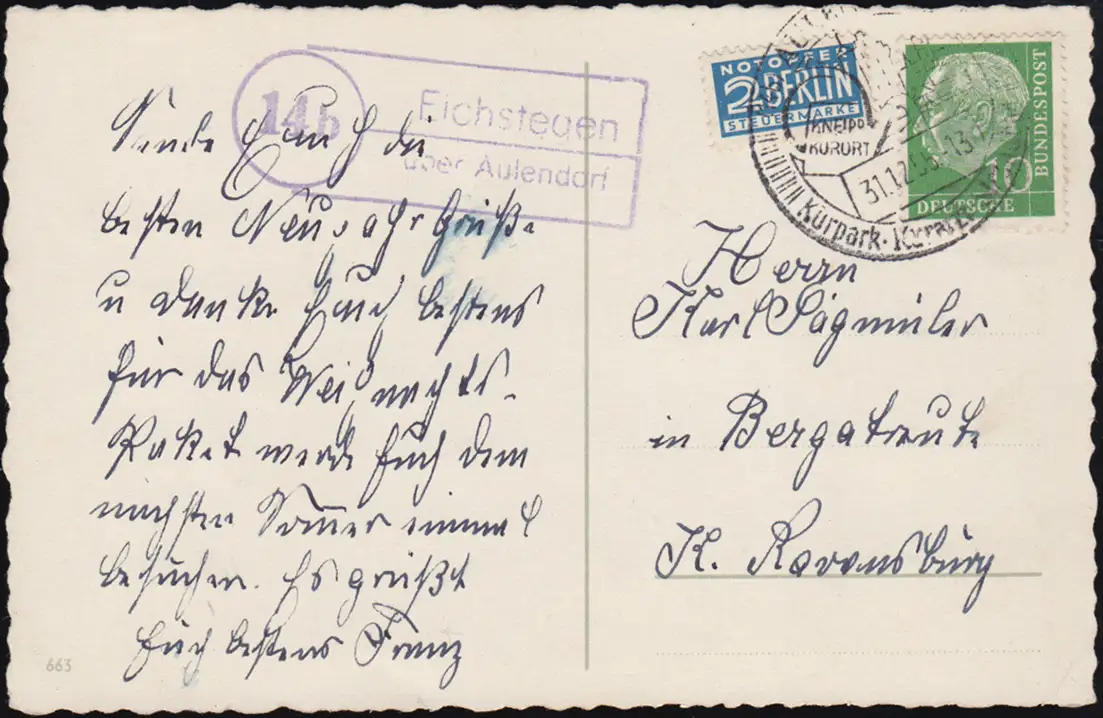 14b
Eichstegen
über Aulendorf
NOTOPFER
2 BERLIN
STEUERMARKE
KNEIPP
KURORT
31.12.55-13
Kurpark · Kurkap
DEUTSCHE
BUNDESPOST
10
Sende Euch die
besten Neujahrsgrüße
u danke Euch bestens
für das Weihnachts-
Paket werde Euch dem
nächsten Sommer einmal
besuchen. Es grüßt
Euch bestens Franz
663
Herrn
Karl Sägmüler
in Bergatreute
K. Ravensburg